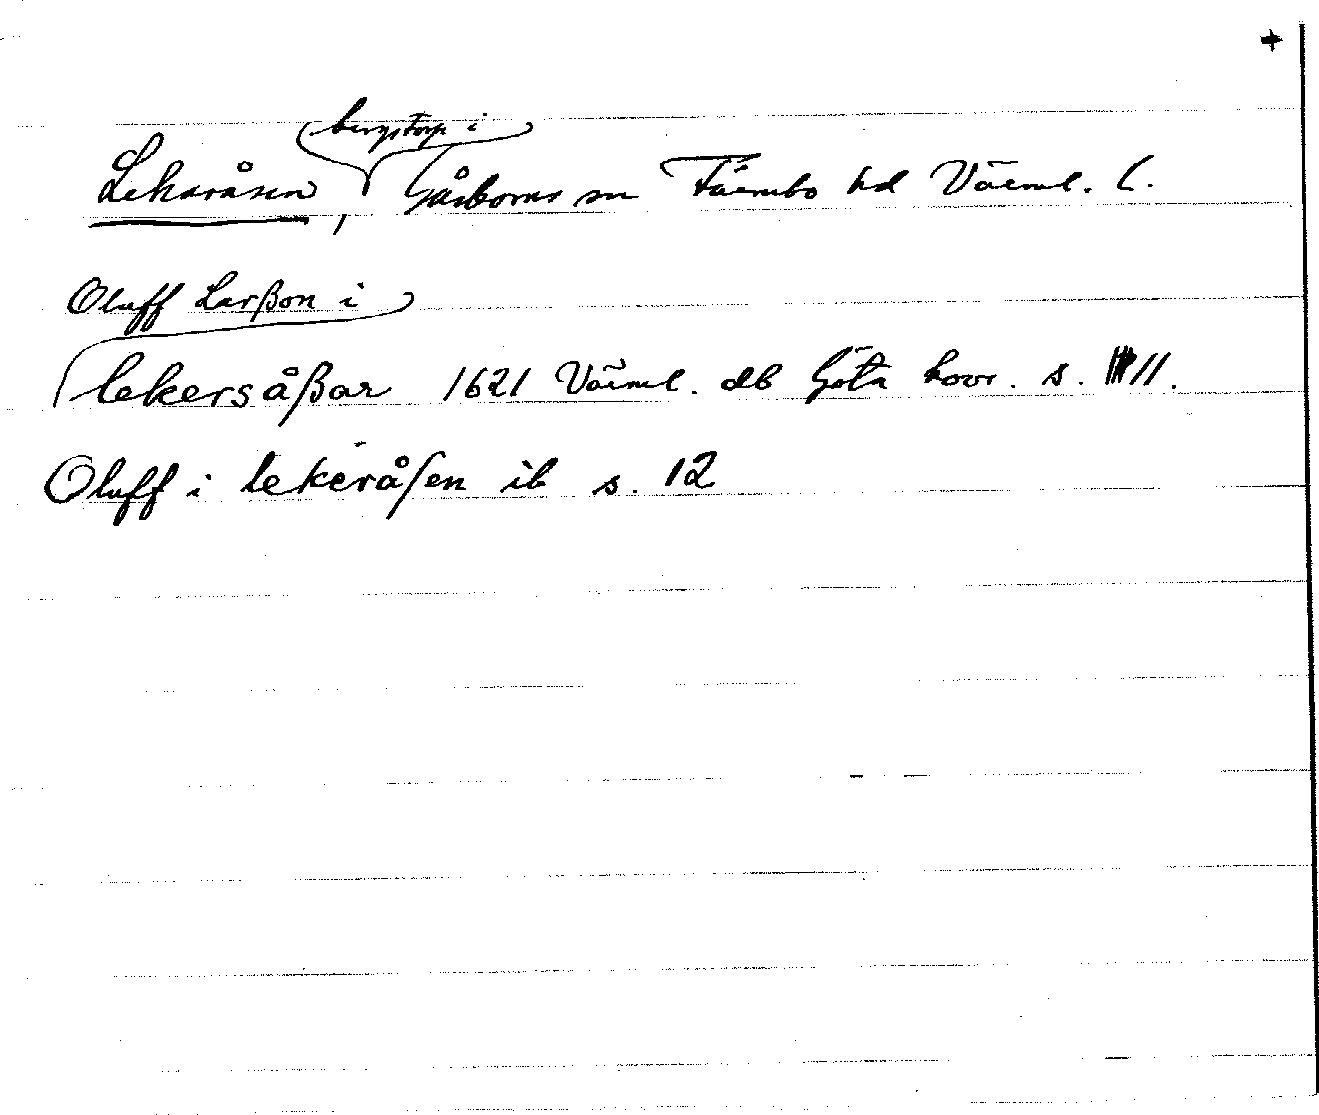 Lekaråsen, bergstorp i Gåsborns sn Färnebo hd Värml. l.
Oluff Larßon i
lekersåßar 1621 Värml. db Göta hovr. s. 11.
Oluff i lekeråſen ib s. 12